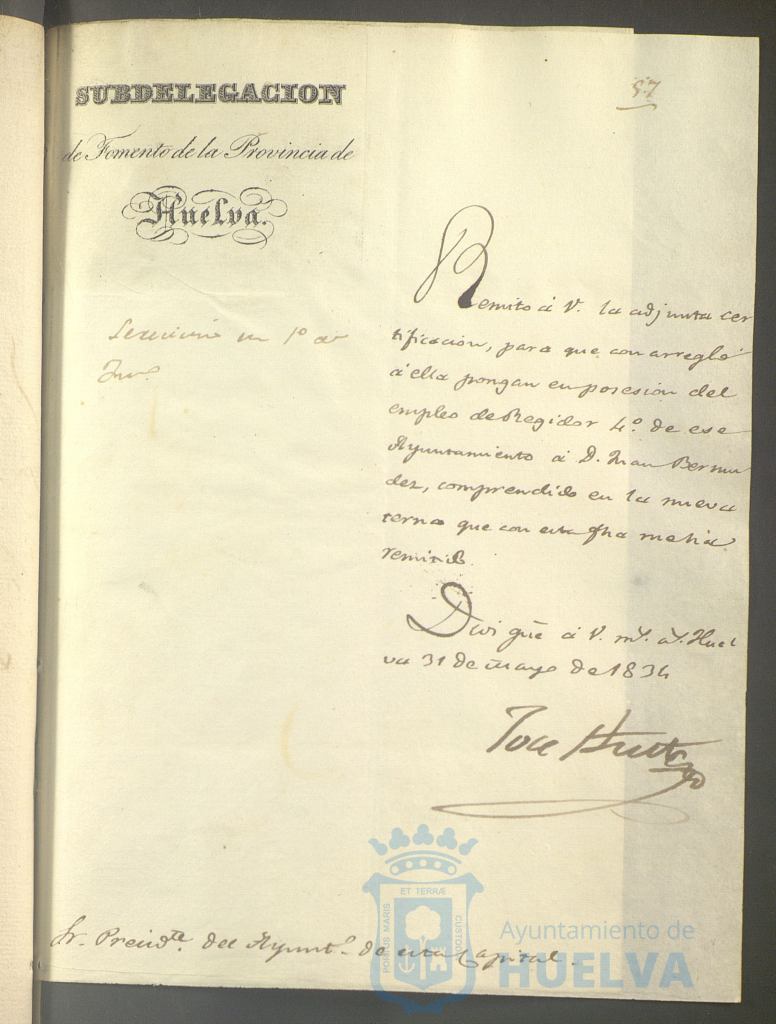 SUBDELEGACION
de Fomento de la Provincia de
Huelva.
57
Remito á V. la adjunta cer
tificacion, para que con arreglo
á ella pongan en posesion del
empleo de Regidor 4.º de ese
Ayuntamiento á D. Juan Bermu
dez, comprendido en la nueva
terna que con esta fha me ha
remitido.
Dios gũe á V. m.s a.s Huel
va 31 de mayo de 1834
Jose Huet
Sr. Presid.te del Ayunt.o de esta Capital.
ET TERRÆ
PORTUS MARIS
CUSTODIA
Ayuntamiento de
HUELVA